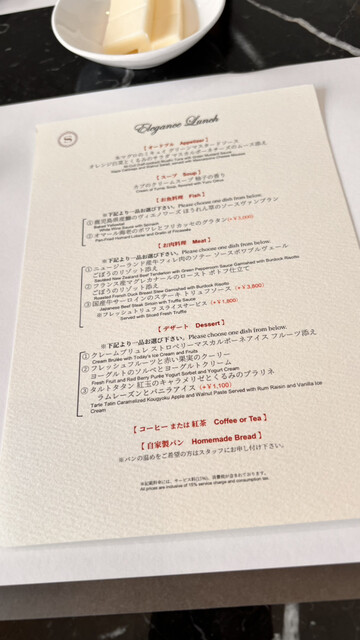 S
Elegance Lunch
【 オードブル Appetizer 】
オレンジ白菜とくるみのサラダ マスカルポーネチーズのムース添え
【 スープ Soup 】
カブのクリームスープ 柚子の香り
Cream of Turnip Soup, flavored with Yuzu Citrus
【 お魚料理 Fish 】
※下記より一品お選び下さい。Please choose one dish from below.
① 鹿児島県産鰤のヴィエノワーズ ほうれん草のソースヴァンブラン
White Wine Sauce with Spinach
② オマール海老のポワレとフリカッセのグラタン(+¥3,000)
Pan-Fried Homard Lobster and Gratin of Fricassée
【 お肉料理 Meat 】
※下記より一品お選び下さい。Please choose one dish from below.
① ニュージーランド産牛フィレ肉のソテー ソースポワブルヴェール
ごぼうのリゾット添え
Sautéed New Zealand Beef Tenderloin with Green Peppercorn Sauce Garnished with Burdock Risotto
② フランス産マグレカナールのロースト ポトフ仕立て
ごぼうのリゾット添え
Roasted French Duck Breast Stew Garnished with Burdock Risotto
③ 国産牛サーロインのステーキ トリュフソース (+¥3,800)
Japanese Beef Steak Sirloin with Truffle Sauce
※フレッシュトリュフ スライスサービス (+¥1,800)
Served with Sliced Fresh Truffle
【 デザート Dessert 】
※下記より一品お選び下さい。Please choose one dish from below.
① クレームブリュレ ストロベリーマスカルポーネアイス フルーツ添え
Cream Brulée with Today's Ice Cream and Fruits
② フレッシュフルーツと赤い果実のクーリー
ヨーグルトのソルベとヨーグルトクリーム
Fresh Fruit and Red Berry Purée Yogurt Sorbet and Yogurt Cream
③ タルトタタン 紅玉のキャラメリゼとくるみのプラリネ
ラムレーズンとバニラアイス (+¥1,100)
Tarte Tatin Caramelized Kougyoku Apple and Walnut Paste Served with Rum Raisin and Vanilla Ice Cream
【 コーヒー または 紅茶 Coffee or Tea 】
【 自家製パン Homemade Bread 】
※パンの温めをご希望の方はスタッフにお申し付け下さい。
※記載料金には、サービス料(15%)、消費税が含まれております。
All prices are inclusive of 15% service charge and consumption tax.